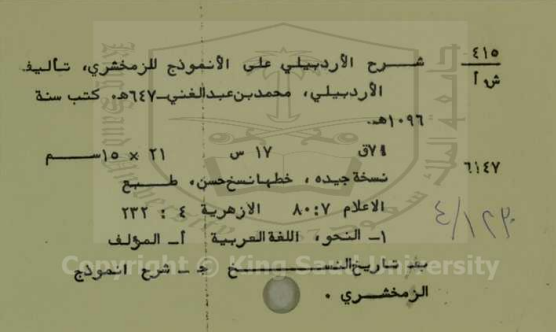 ٤١٥ شرح الأردبيلي على الأنموذج للزمخشري، تأليف
ش أ الأردبيلي، محمد بن عبدالغني ـ٦٤٧هـ. كتب سنة
١٠٩٦هـ.
٧١ق ١٧ س ٢١ × ١٥سم
٦١٤٧ نسخة جيده، خطها نسخ حسن، طبع
الاعلام ٧:٨٠ الازهرية ٤ : ٢٣٢
١ـ النحو، اللغة العربية أـ المؤلف
بـ تاريخ النسخ جـ ـ شرح انموذج
الزمخشري .
Copyright © King Saud University
King Saud University